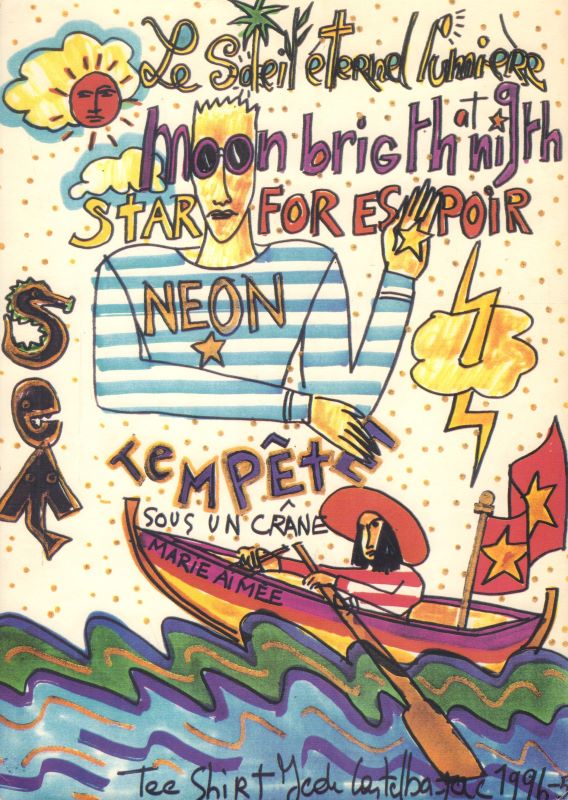 Le Soleil éternel lumière
Moon brigth at nigth
STAR FOR ESPOIR
NEON
Sea
TEMPÊTE
SOUS UN CRÂNE
MARIE AIMEE
Tee Shirt JCde Castelbajac 1996-5